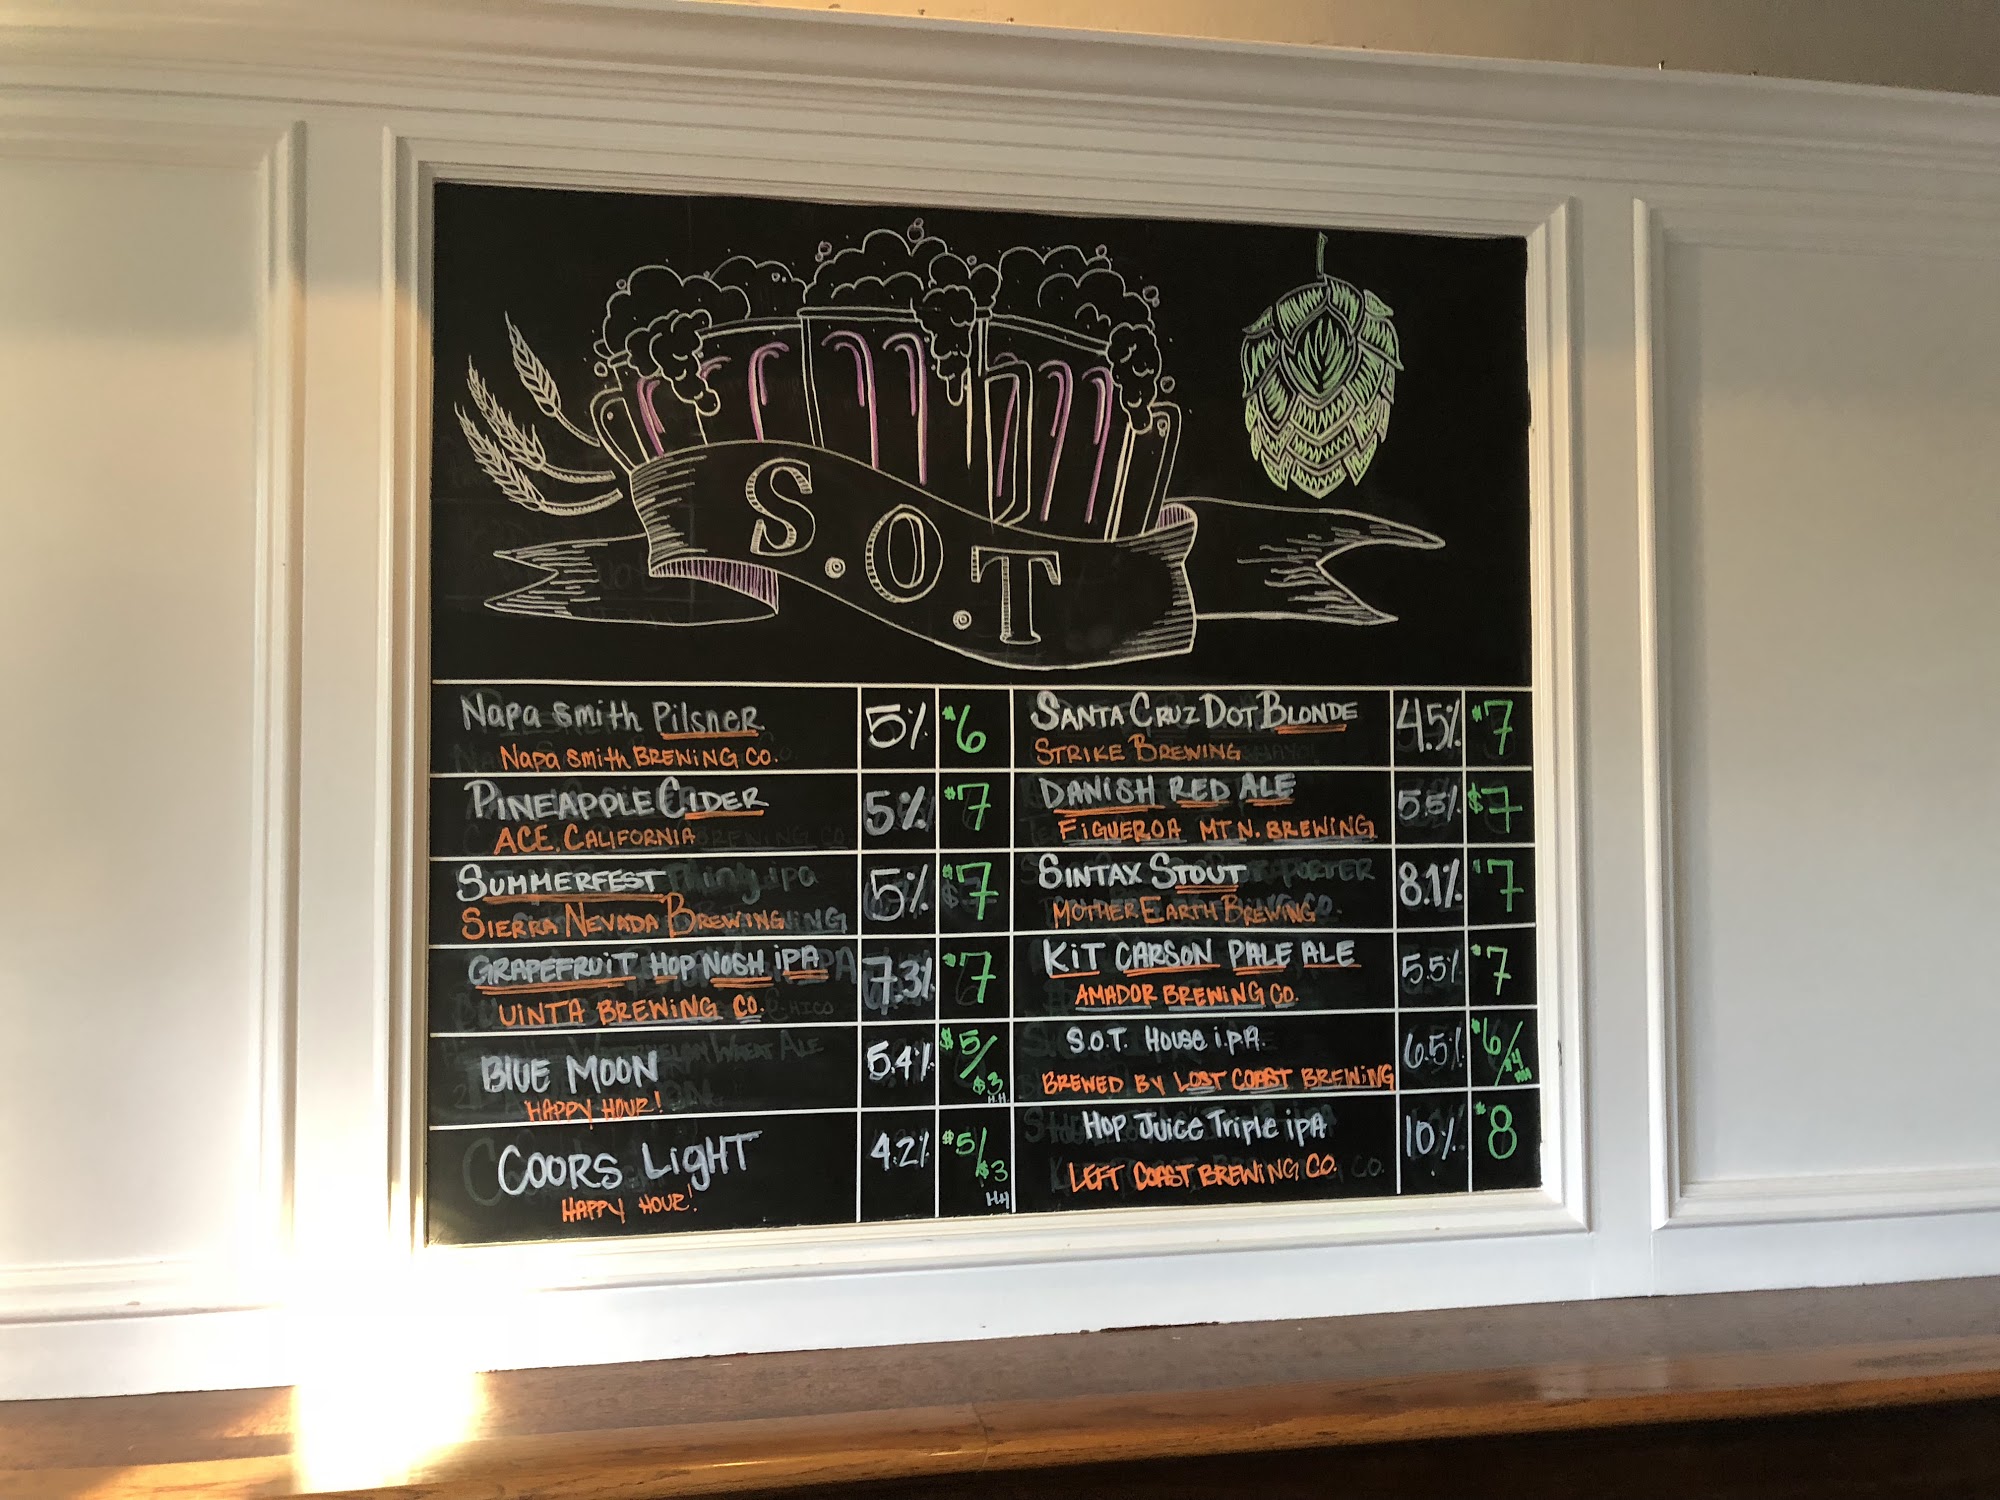 S.O.T
Napa Smith Pilsner 5% $6
Napa Smith Brewing Co.
Pineapple Cider 5% $7
ACE. California
Summerfest 5% $7
Sierra Nevada Brewing
Grapefruit Hop Nosh iPA 7.3% $7
Uinta Brewing Co.
Blue Moon 5.4% $5/$3 H.H.
Happy Hour!
Coors Light 4.2% $5/$3 H.H
Happy Hour!
Santa Cruz Dot Blonde 4.5% $7
Strike Brewing
Danish Red Ale 5.5% $7
Figueroa Mtn. Brewing
Sintax Stout 8.1% $7
Mother Earth Brewing
Kit Carson Pale Ale 5.5% $7
Amador Brewing Co.
S.O.T. House i.P.A. 6.5% $6/$4 HH
Brewed by Lost Coast Brewing
Hop Juice Triple iPA 10% $8
Left Coast Brewing Co.